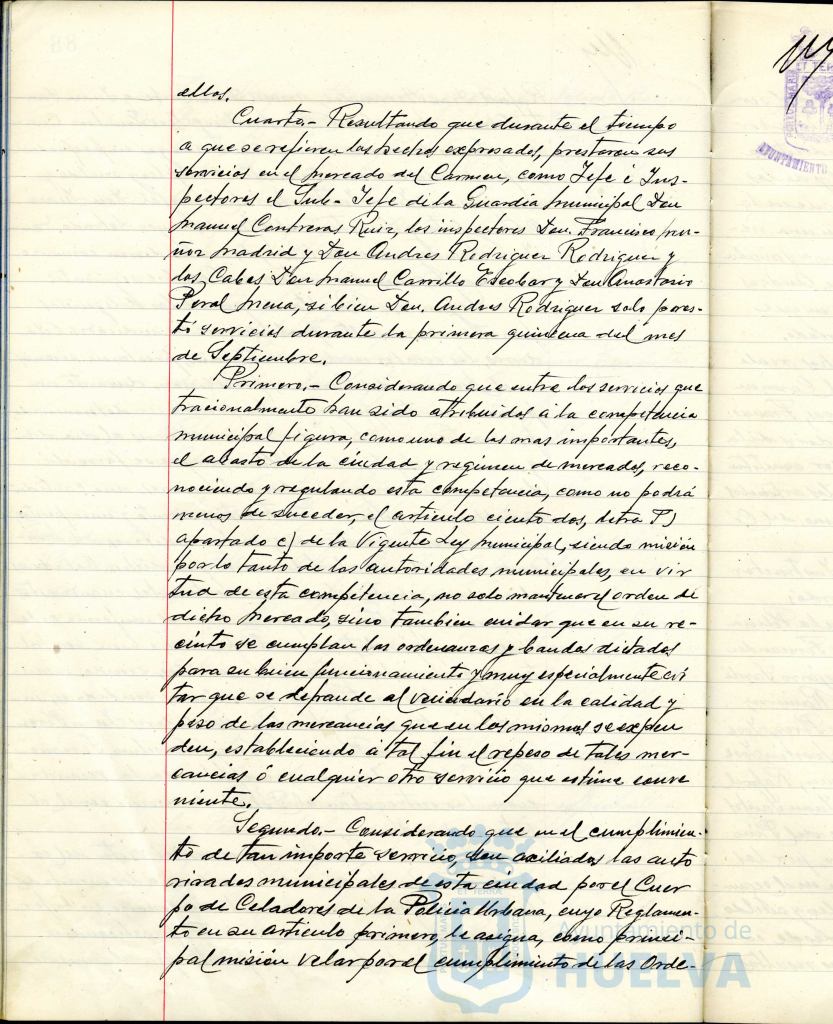 ellos.
Cuarto.- Resultando que durante el tiempo
a que se refieren los hechos expresados, prestaron sus
servicios en el mercado del Carmen, como Jefe é Ins-
pectores el Sub-Jefe de la Guardia Municipal Don
Manuel Contreras Ruiz, los inspectores Don. Francisco Mu-
ñoz Madrid y Don Andres Rodriguez Rodriguez y
los Cabos Don Manuel Carrillo Escobar y Don Anastasio
Peral Mena, si bien Don. Andres Rodriguez solo pores-
tó servicios durante la primera quincena del mes
de Septiembre.
Primero.- Considerando que entre los servicios que
tracionalmente han sido atribuidos á la competencia
municipal figura, como uno de los mas importantes,
el abasto de la ciudad y regimen de mercados, reco-
nociendo y regulando esta competencia, como no podrá
menos de suceder, el articulo ciento dos, letra
apartado c) de la Vigente Ley Municipal, siendo misión
por lo tanto de las autoridades municipales, en vir
tud de esta competencia, no solo mantener el orden de
dicho Mercado, sino tambien cuidar que en su re-
cinto se cumplan las ordenanzas y bandos dictados
para su buen funcionamiento y muy especialmente evi
tar que se defraude al vecindario en la calidad y
peso de las mercancias que en los mismos se expen
den, estableciendo á tal fin el repeso de tales mer-
cancias ó cualquier otro servicio que estime conve
niente.
Segundo.- Considerando que en el cumplimien-
to de tan importe servicio, son axiliados las auto
ridades municipales de esta ciudad por el Cuer
po de Celadores de la Policia Urbana, cuyo Reglamen-
to en su articulo primero, le asigna, como princi-
pal misión velar por el cumplimiento de las Orde-
Ayuntamiento de
HUELVA
AYUNTAMIENTO